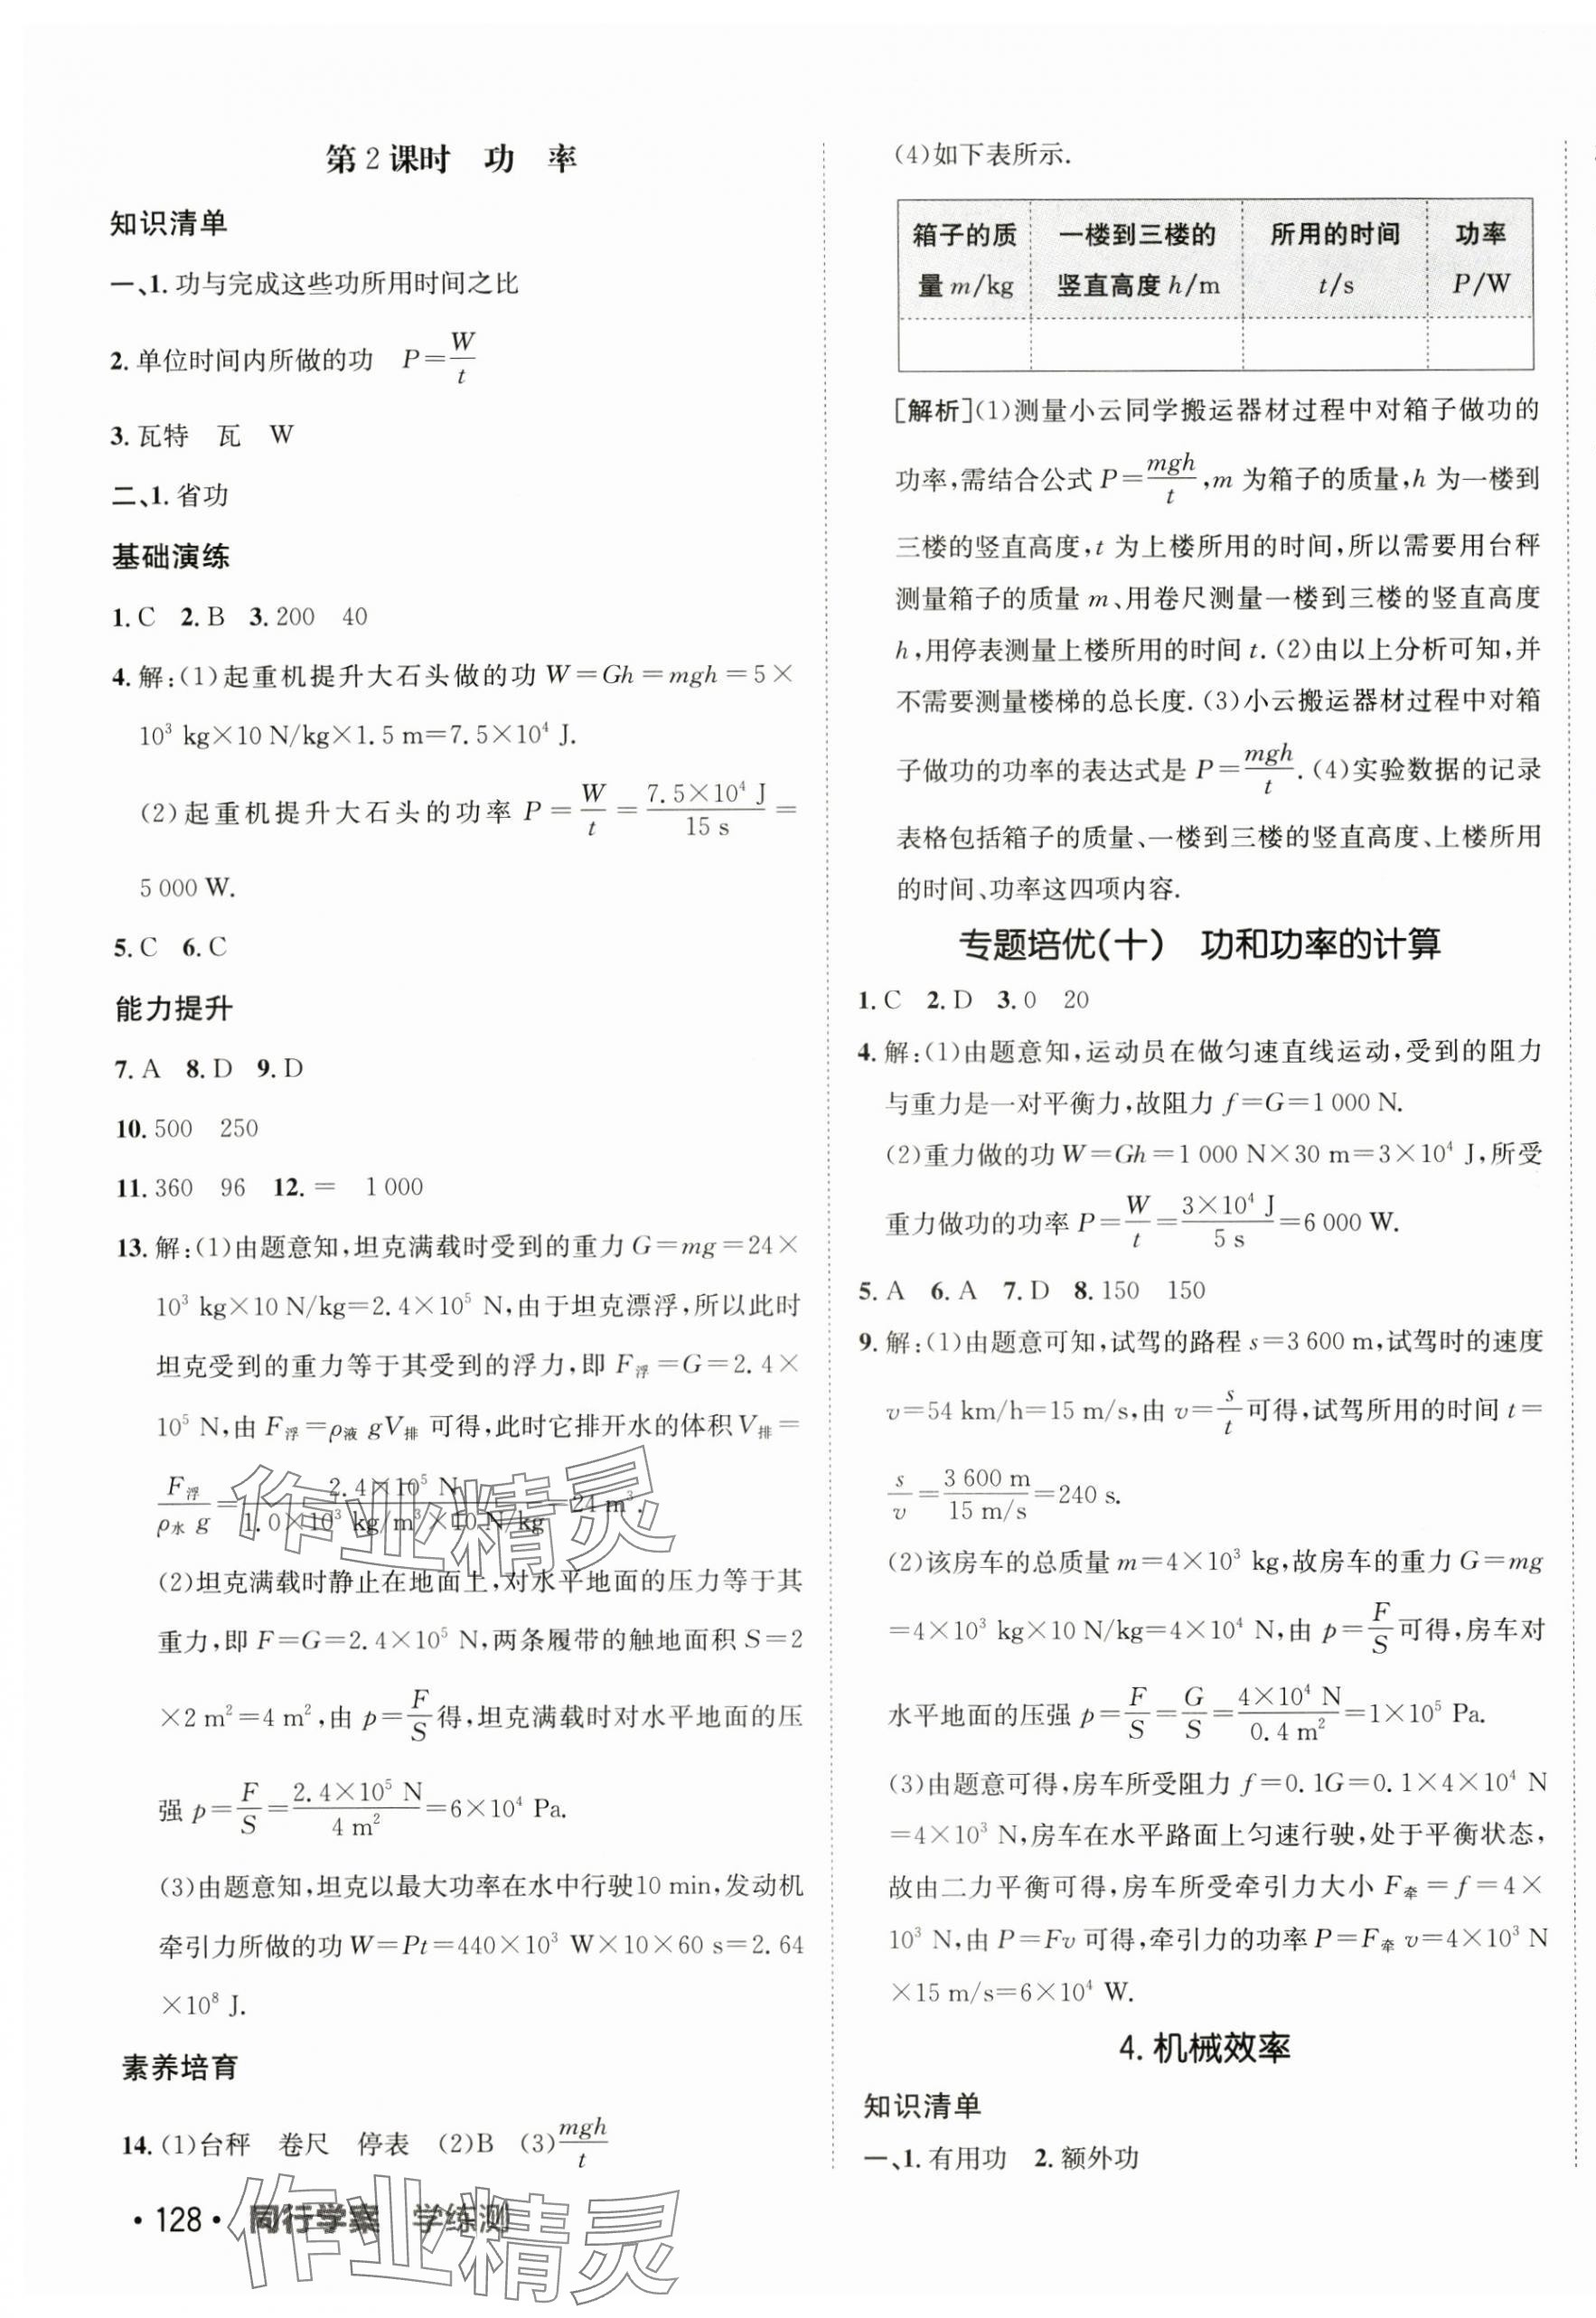 第2课时 功 率
知识清单
一、1.功与完成这些功所用时间之比
2.单位时间内所做的功 P=W/t
3.瓦特 瓦 W
二、1.省功
基础演练
1.C 2.B 3.200 40
4.解:(1)起重机提升大石头做的功W=Gh=mgh=5×
10³ kg×10 N/kg×1.5 m=7.5×10⁴ J.
(2)起重机提升大石头的功率P=W/t=7.5×10⁴ J/15 s=
5 000 W.
5.C 6.C
能力提升
7.A 8.D 9.D
10.500 250
11.360 96 12.= 1 000
13.解:(1)由题意知,坦克满载时受到的重力G=mg=24×
10³ kg×10 N/kg=2.4×10⁵ N,由于坦克漂浮,所以此时
坦克受到的重力等于其受到的浮力,即F浮=G=2.4×
10⁵ N,由F浮=ρ液gV排可得,此时它排开水的体积V排=
F浮/ρ水g=2.4×10⁵ N/1.0×10³ kg/m³×10 N/kg=24 m³.
(2)坦克满载时静止在地面上,对水平地面的压力等于其
重力,即F=G=2.4×10⁵ N,两条履带的触地面积S=2
×2 m²=4 m²,由p=F/S得,坦克满载时对水平地面的压
强p=F/S=2.4×10⁵ N/4 m²=6×10⁴ Pa.
(3)由题意知,坦克以最大功率在水中行驶10 min,发动机
牵引力所做的功W=Pt=440×10³ W×10×60 s=2.64
×10⁸ J.
素养培育
14.(1)台秤 卷尺 停表 (2)B (3)mgh/t
·128· 同行学案 学练测
(4)如下表所示.
箱子的质量m/kg 一楼到三楼的竖直高度h/m 所用的时间t/s 功率P/W
[解析](1)测量小云同学搬运器材过程中对箱子做功的
功率,需结合公式P=mgh/t,m为箱子的质量,h为一楼到
三楼的竖直高度,t为上楼所用的时间,所以需要用台秤
测量箱子的质量m、用卷尺测量一楼到三楼的竖直高度
h,用停表测量上楼所用的时间t.(2)由以上分析可知,并
不需要测量楼梯的总长度.(3)小云搬运器材过程中对箱
子做功的功率的表达式是P=mgh/t.(4)实验数据的记录
表格包括箱子的质量、一楼到三楼的竖直高度、上楼所用
的时间、功率这四项内容.
专题培优(十) 功和功率的计算
1.C 2.D 3.0 20
4.解:(1)由题意知,运动员在做匀速直线运动,受到的阻力
与重力是一对平衡力,故阻力f=G=1 000 N.
(2)重力做的功W=Gh=1 000 N×30 m=3×10⁴ J,所受
重力做功的功率P=W/t=3×10⁴ J/5 s=6 000 W.
5.A 6.A 7.D 8.150 150
9.解:(1)由题意可知,试驾的路程s=3 600 m,试驾时的速度
v=54 km/h=15 m/s,由v=s/t可得,试驾所用的时间t=
s/v=3 600 m/15 m/s=240 s.
(2)该房车的总质量m=4×10³ kg,故房车的重力G=mg
=4×10³ kg×10 N/kg=4×10⁴ N,由p=F/S可得,房车对
水平地面的压强p=F/S=G/S=4×10⁴ N/0.4 m²=1×10⁵ Pa.
(3)由题意可得,房车所受阻力f=0.1G=0.1×4×10⁴ N
=4×10³ N,房车在水平路面上匀速行驶,处于平衡状态,
故由二力平衡可得,房车所受牵引力大小F牵=f=4×
10³ N,由P=Fv可得,牵引力的功率P=F牵v=4×10³ N
×15 m/s=6×10⁴ W.
4.机械效率
知识清单
一、1.有用功 2.额外功
作业精灵
作业精灵